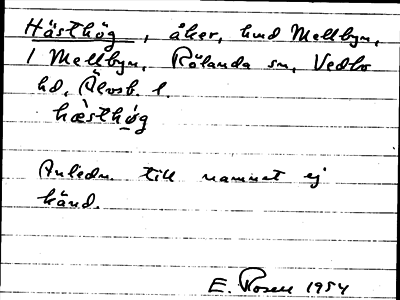 Hästhög, åker, hmd Mellbyn,
1 Mellbyn, Rölanda sn, Vedbo
hd, Älvsb. l.
hæ̀sthó̤g
Anledn. till namnet ej
känd.
E. Rosell 1954